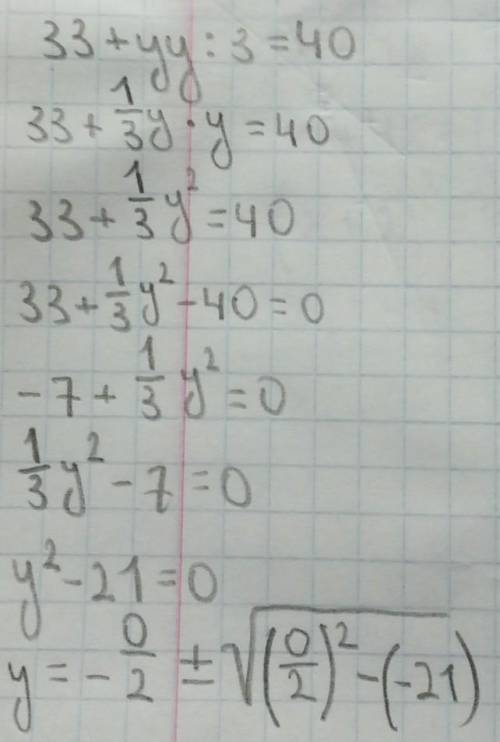 33 + yy : 3 = 40
33 + 1/3 y · y = 40
33 + 1/3 y² = 40
33 + 1/3 y² - 40 = 0
-7 + 1/3 y² = 0
1/3 y² - 7 = 0
y² - 21 = 0
y = - 0/2 ± √((0/2)² - (-21))